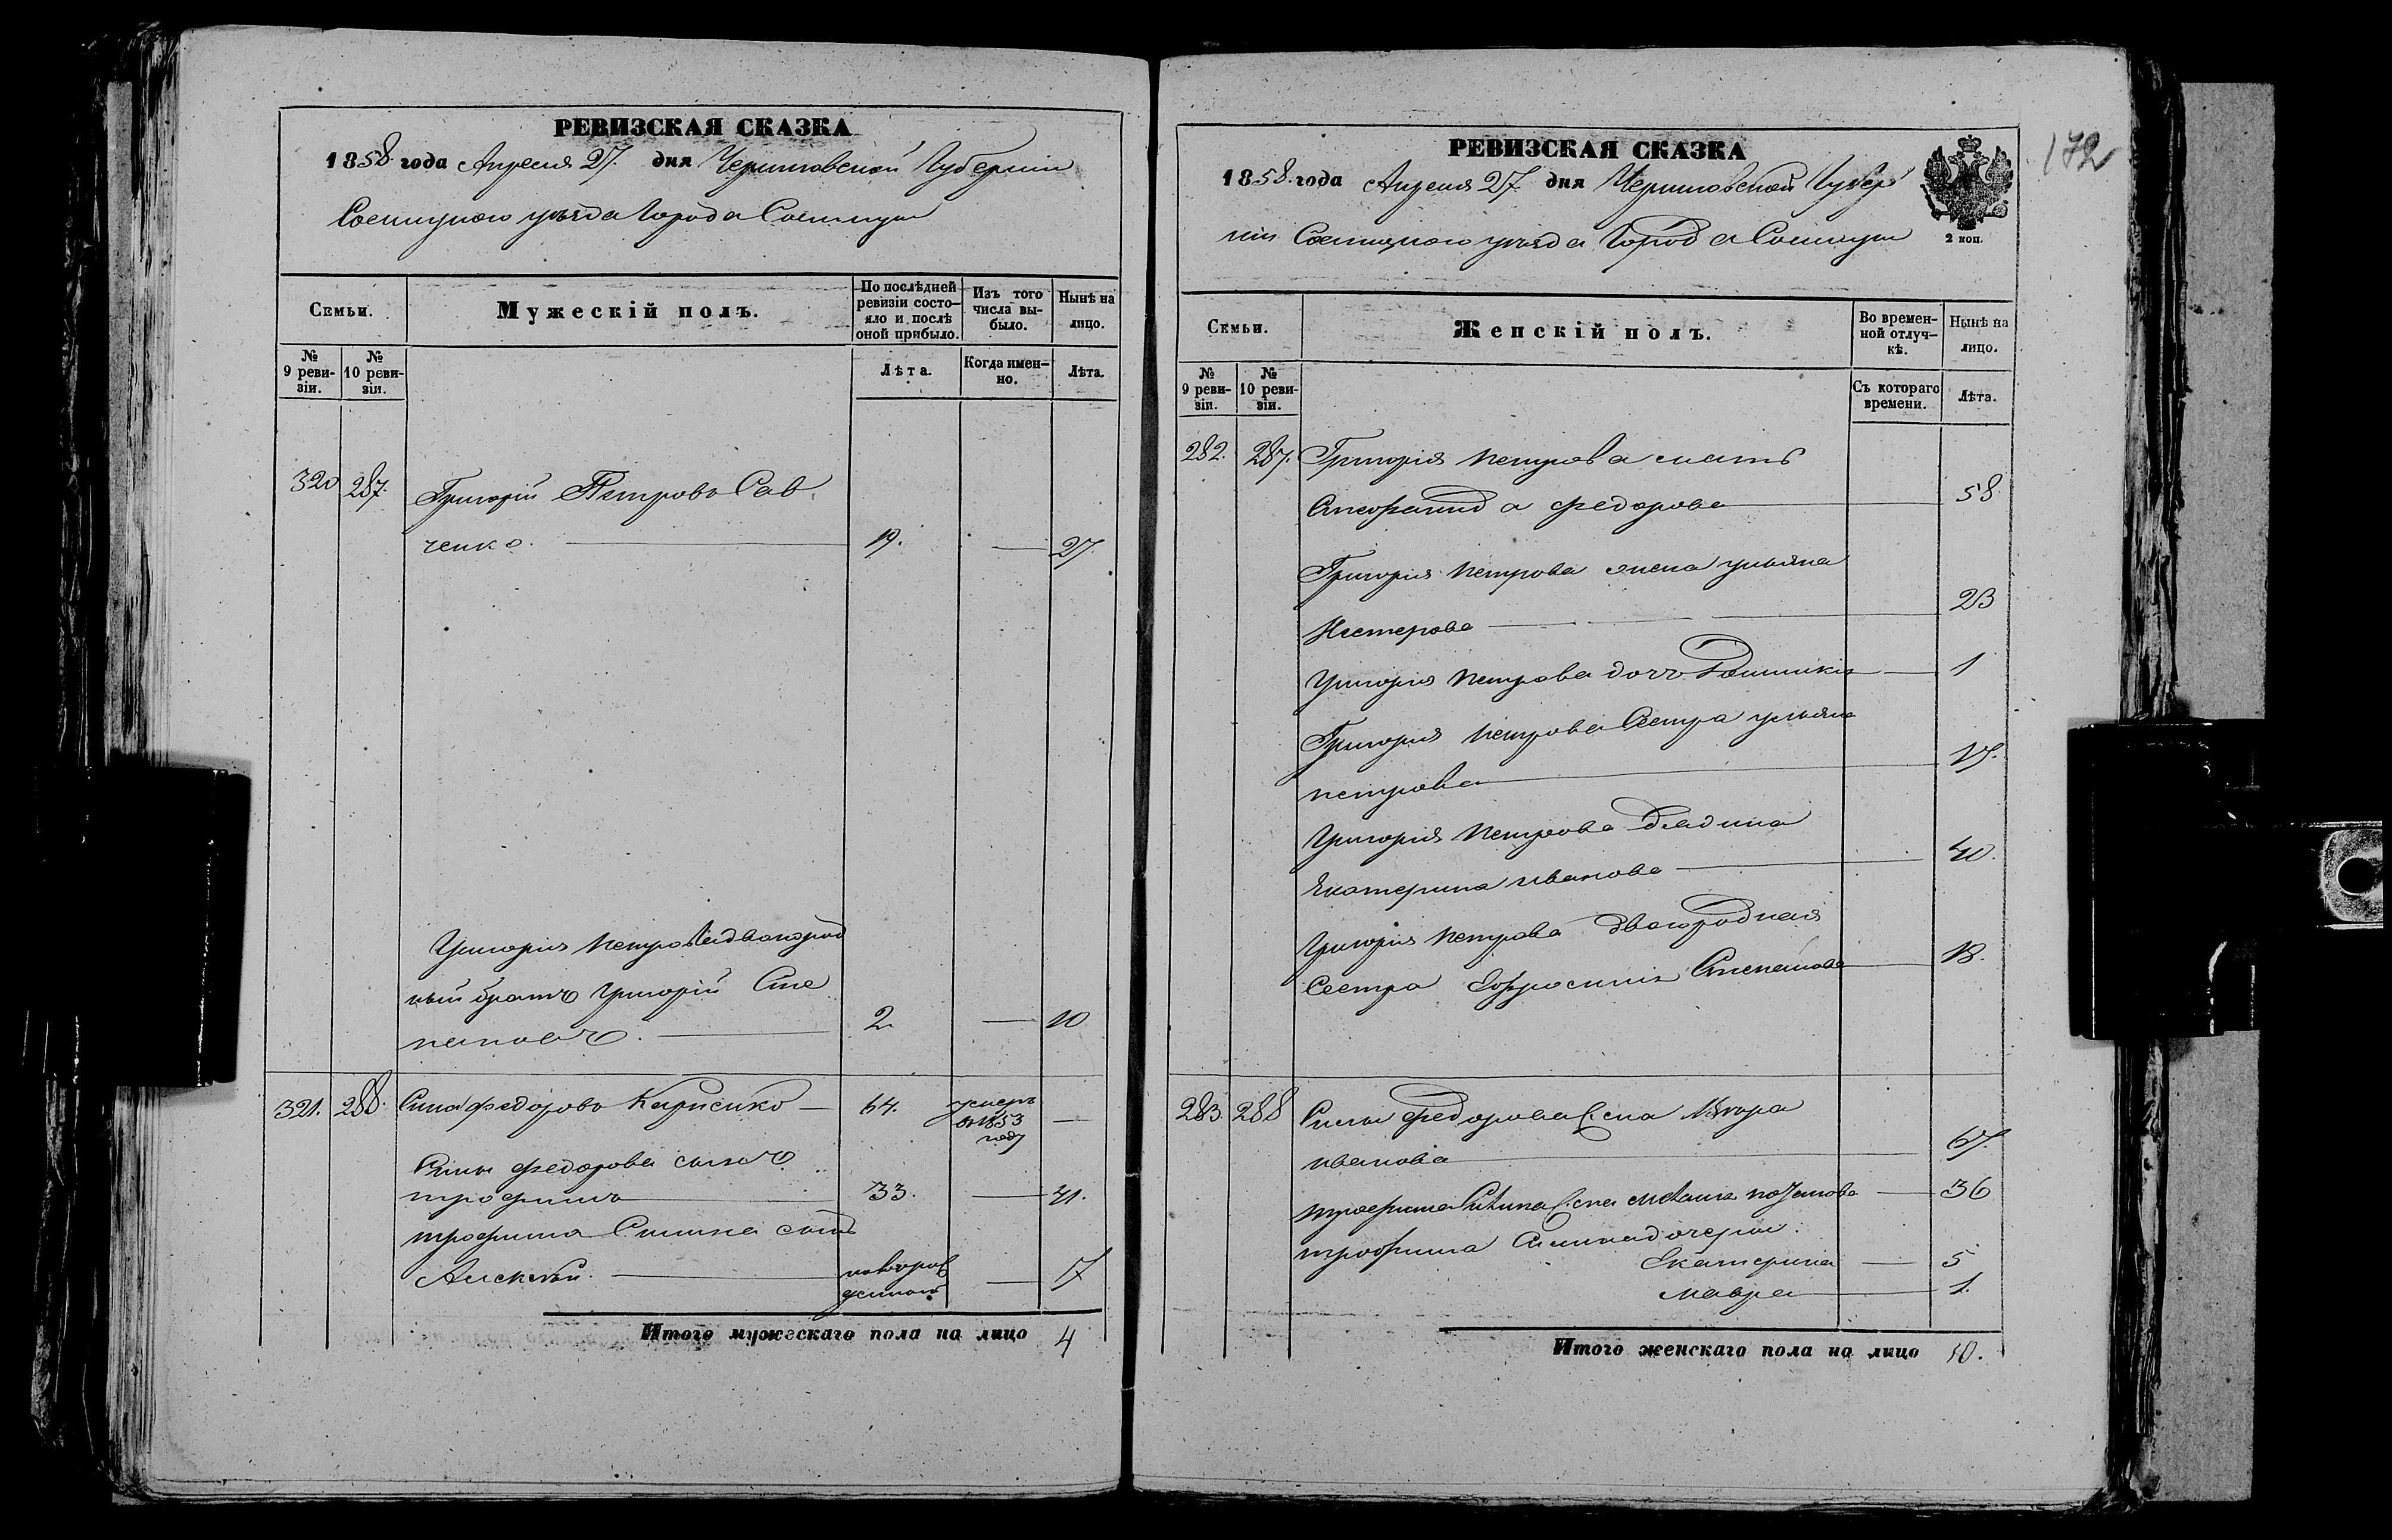 РЕВИЗСКАЯ СКАЗКА
1858 года Апреля 27. дня Черниговской Губерніи
Сосницкого уезда Города Сосницы
Семьи.
Мужескій полъ.
По послѣдней ревизіи состо-
яло и послѣ оной прибыло.
Изъ того числа вы-
было.
Нынѣ на лицо.
№ 9 реви-
зіи.
№ 10 реви-
зіи.
Лѣта.
Когда имен-
но.
Лѣта.
320 287. Григорій Петровъ Сав
ченко. 19. 27.
Григорія Петрова двоюрод
ный братъ Григорій Сте
пановъ. 2. 10
321. 288. Сила Федоровъ 64. умеръ
в 1853
году
Силы Федорова сынъ
трофимъ 33. 41.
трофима Силина сынъ
Алексей. новорож
денный 7
Итого мужескаго пола на лицо 4
РЕВИЗСКАЯ СКАЗКА
172
1858. года Апреля 27. дня Черниговской Губер
ніи Сосницкого уезда Города Сосницы
2 коп.
Семьи.
Женскій полъ.
Во времен-
ной отлуч-
кѣ.
Нынѣ на лицо.
№ 9 реви-
зіи.
№ 10 реви-
зіи.
Съ котораго времени.
Лѣта.
282. 287. Григорія Петрова мать
Степанида Федорова 58
Григорія Петрова жена ульяна
Нестерова 23
Григорія Петрова дочь 1
Григорія Петрова Сестра ульяна
петрова 17.
Григорія Петрова дядина
Екатерина иванова 40.
Григорія Петрова двоюродная
Сестра Ефросинія Степанова 13.
283. 288 Силы Федорова жена
иванова 67.
трофима Силина жена 36
трофима Силина дочери:
Екатерина 5
Мавра 1.
Итого женскаго пола на лицо 10.